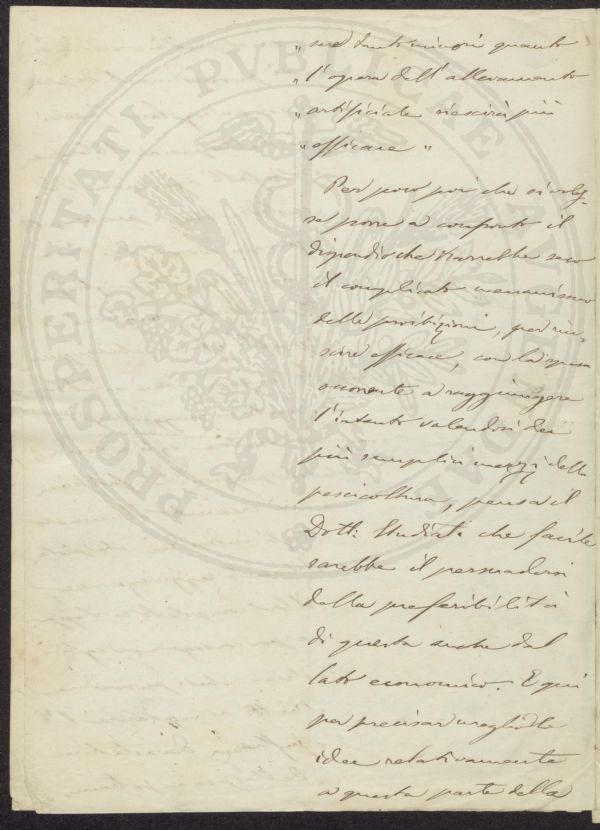 „ sere tanto minori quanto
„ l'opera dell'allevamento
„ artificiale riescirà più
„ efficace "
Per poco poi che si voles-
se porre a confronto il
dispendio che trarrebbe seco
il complicato meccanismo
delle proibizioni, per riu-
scire efficace, con la spesa
occorrente a raggiungere
l'intento valendosi dei
più semplici mezzi della
pescicoltura, pensa il
Dott: Studiati che facile
sarebbe il persuadersi
della preferibilità
di questa anche dal
lato economico. E qui
per precisar meglio le
idee relativamente
a questa parte della
PROSPERITATI PUBLICAE AUGENDAE